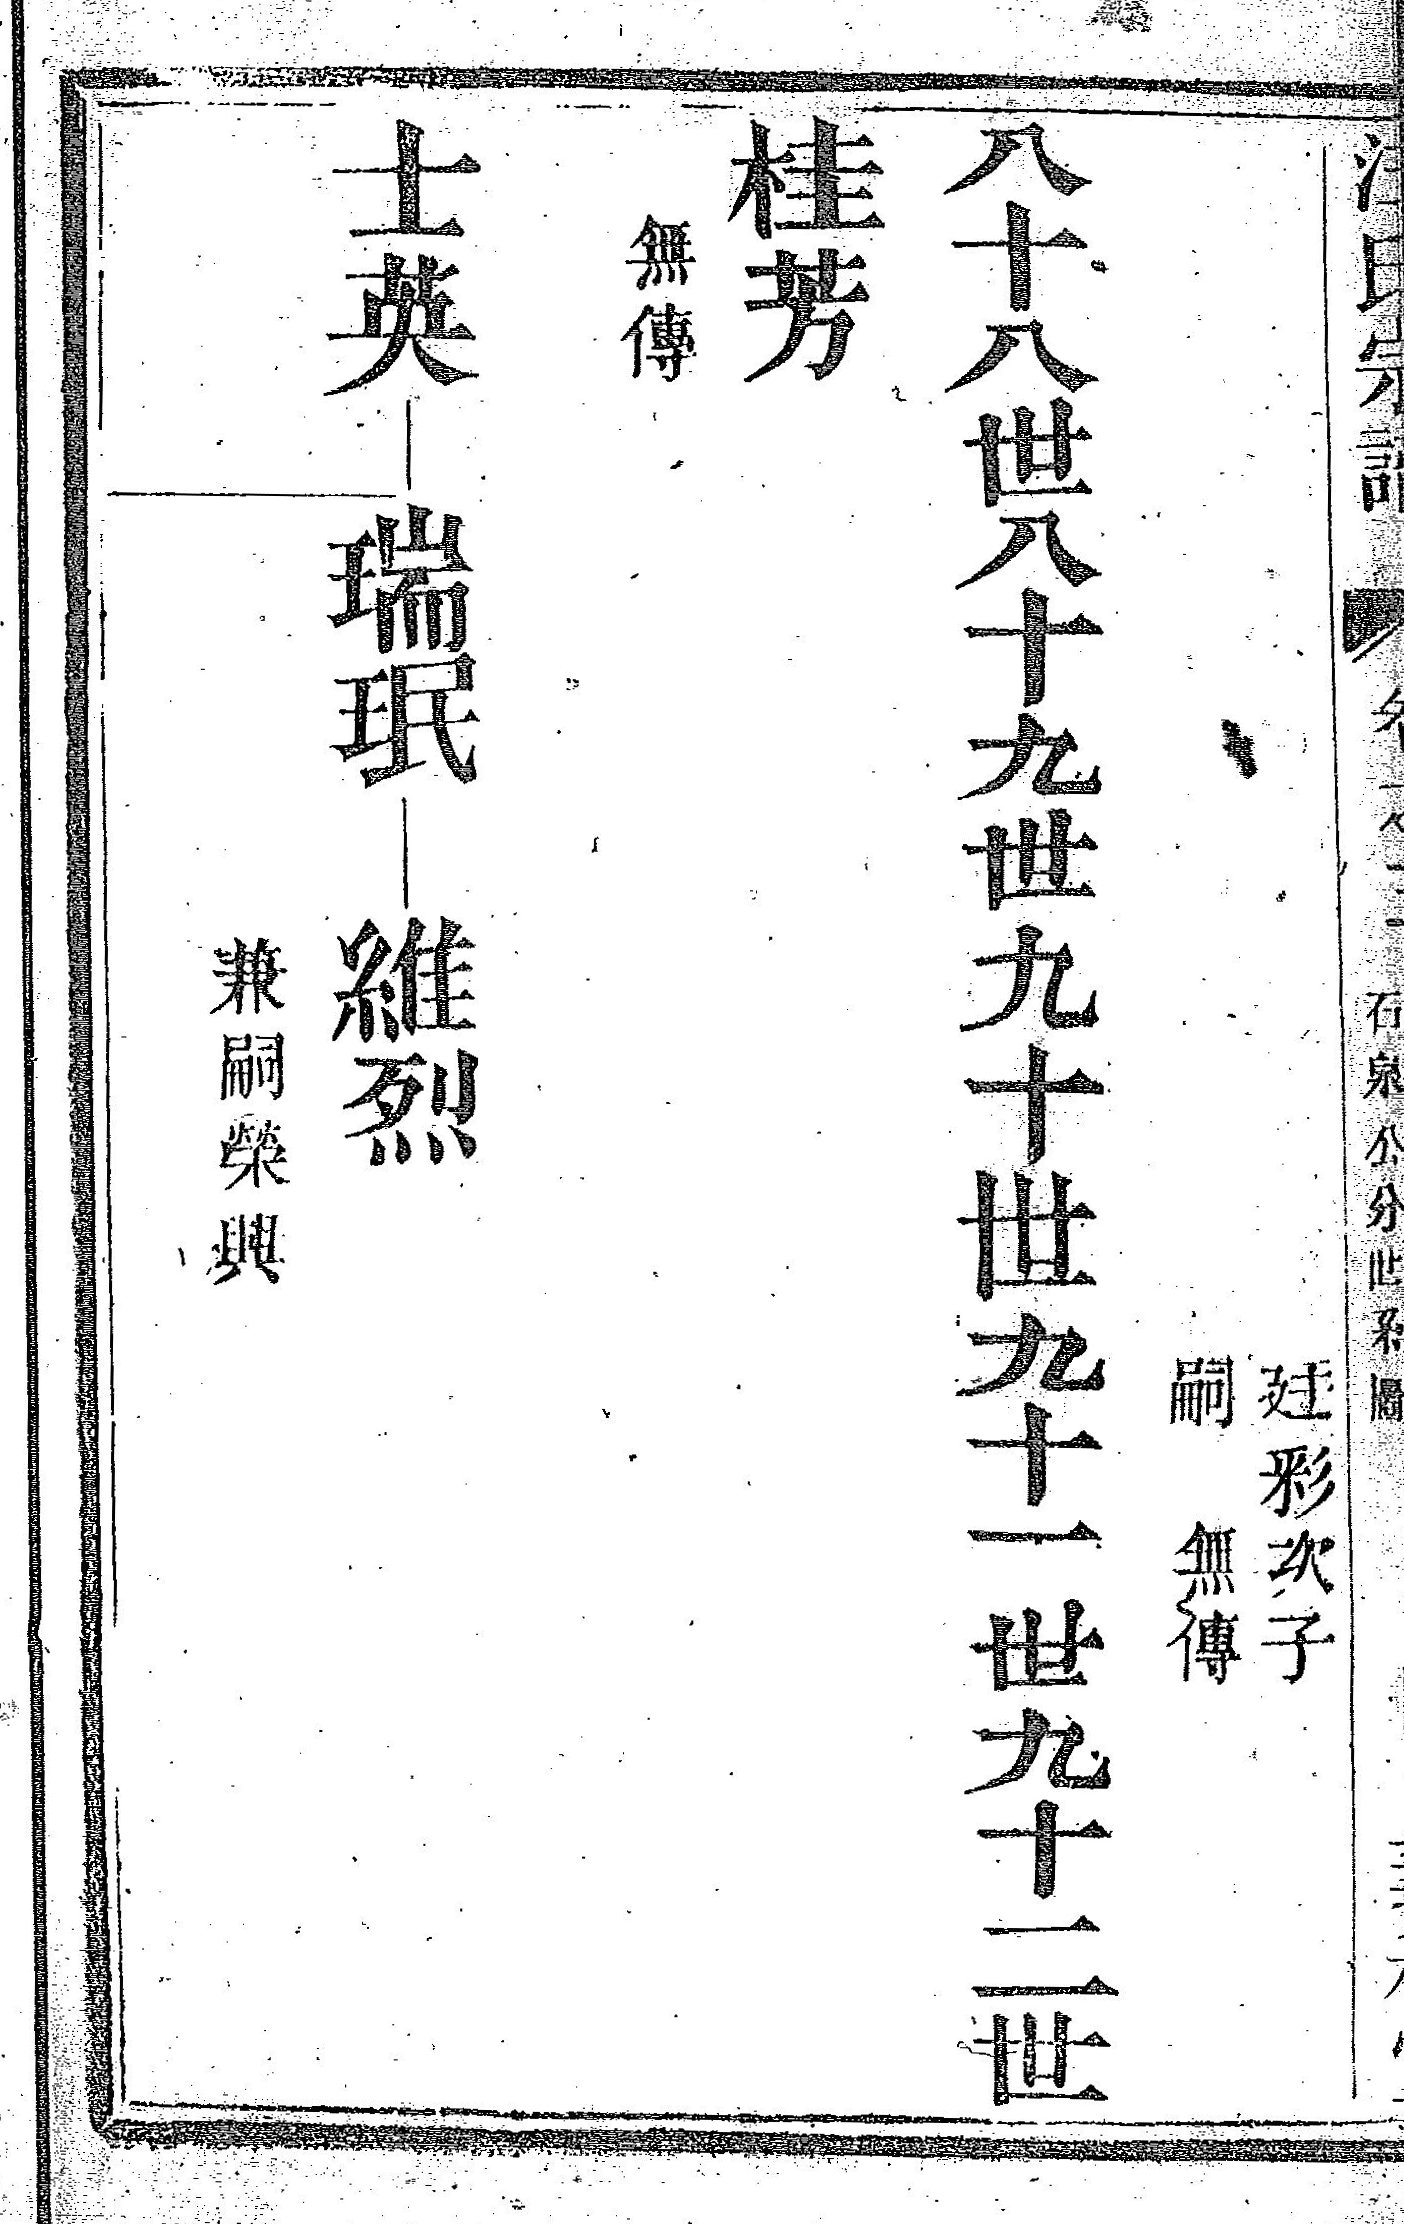 石泉公分世系圖
廷彩次子
嗣 無傳
八十八世八十九世九十世九十一世九十二世
桂芳
無傳
士英
瑞珉
維烈
兼嗣榮興